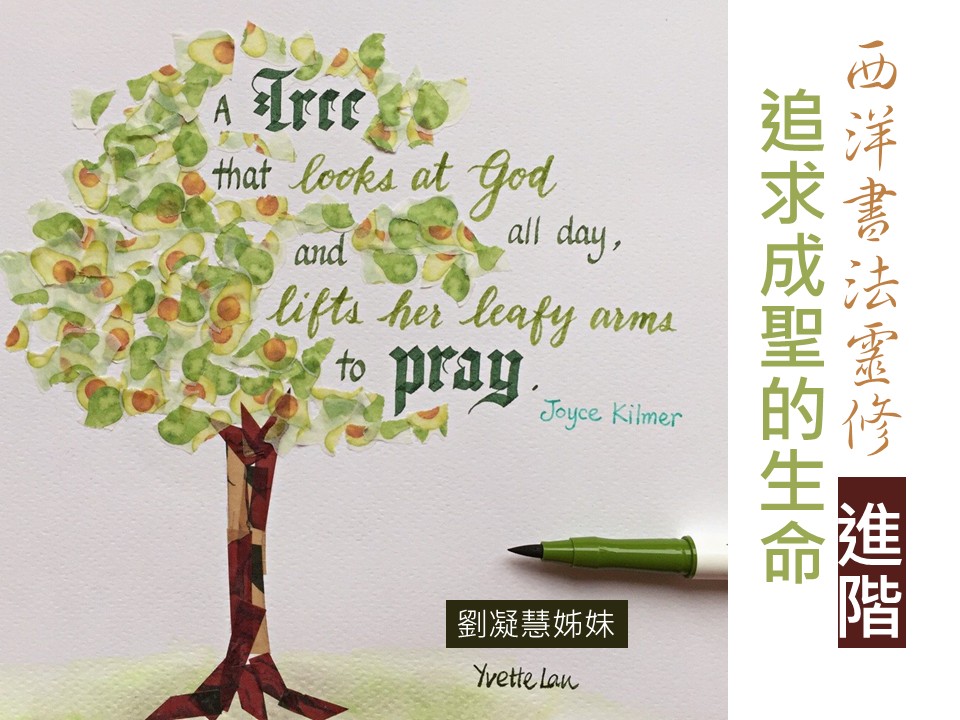 A Tree
that looks at God
all day,
and
lifts her leafy arms
to pray.
Joyce Kilmer
劉凝慧姊妹
Yvette Lau
西洋書法靈修
進階
追求成聖的生命